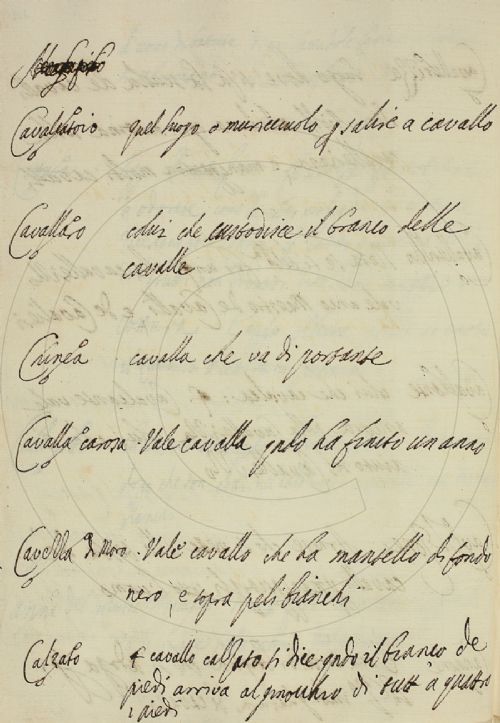 Cavalcatoio quel luogo o muricciuolo p salire a cavallo
Cavallaro colui che custodisce il branco delle
cavalle
Chinea cavalla che va di portante
Cavalla carosa. Vale cavalla qndo ha finito un anno
Cavezza di Moro. Vale cavallo che ha mantello di fondo
nero, e sopra peli bianchi
Calzato cavallo calzato si dice qndo il bianco de
piedi arriva al ginocchio di tutt' a quattro
i piedi